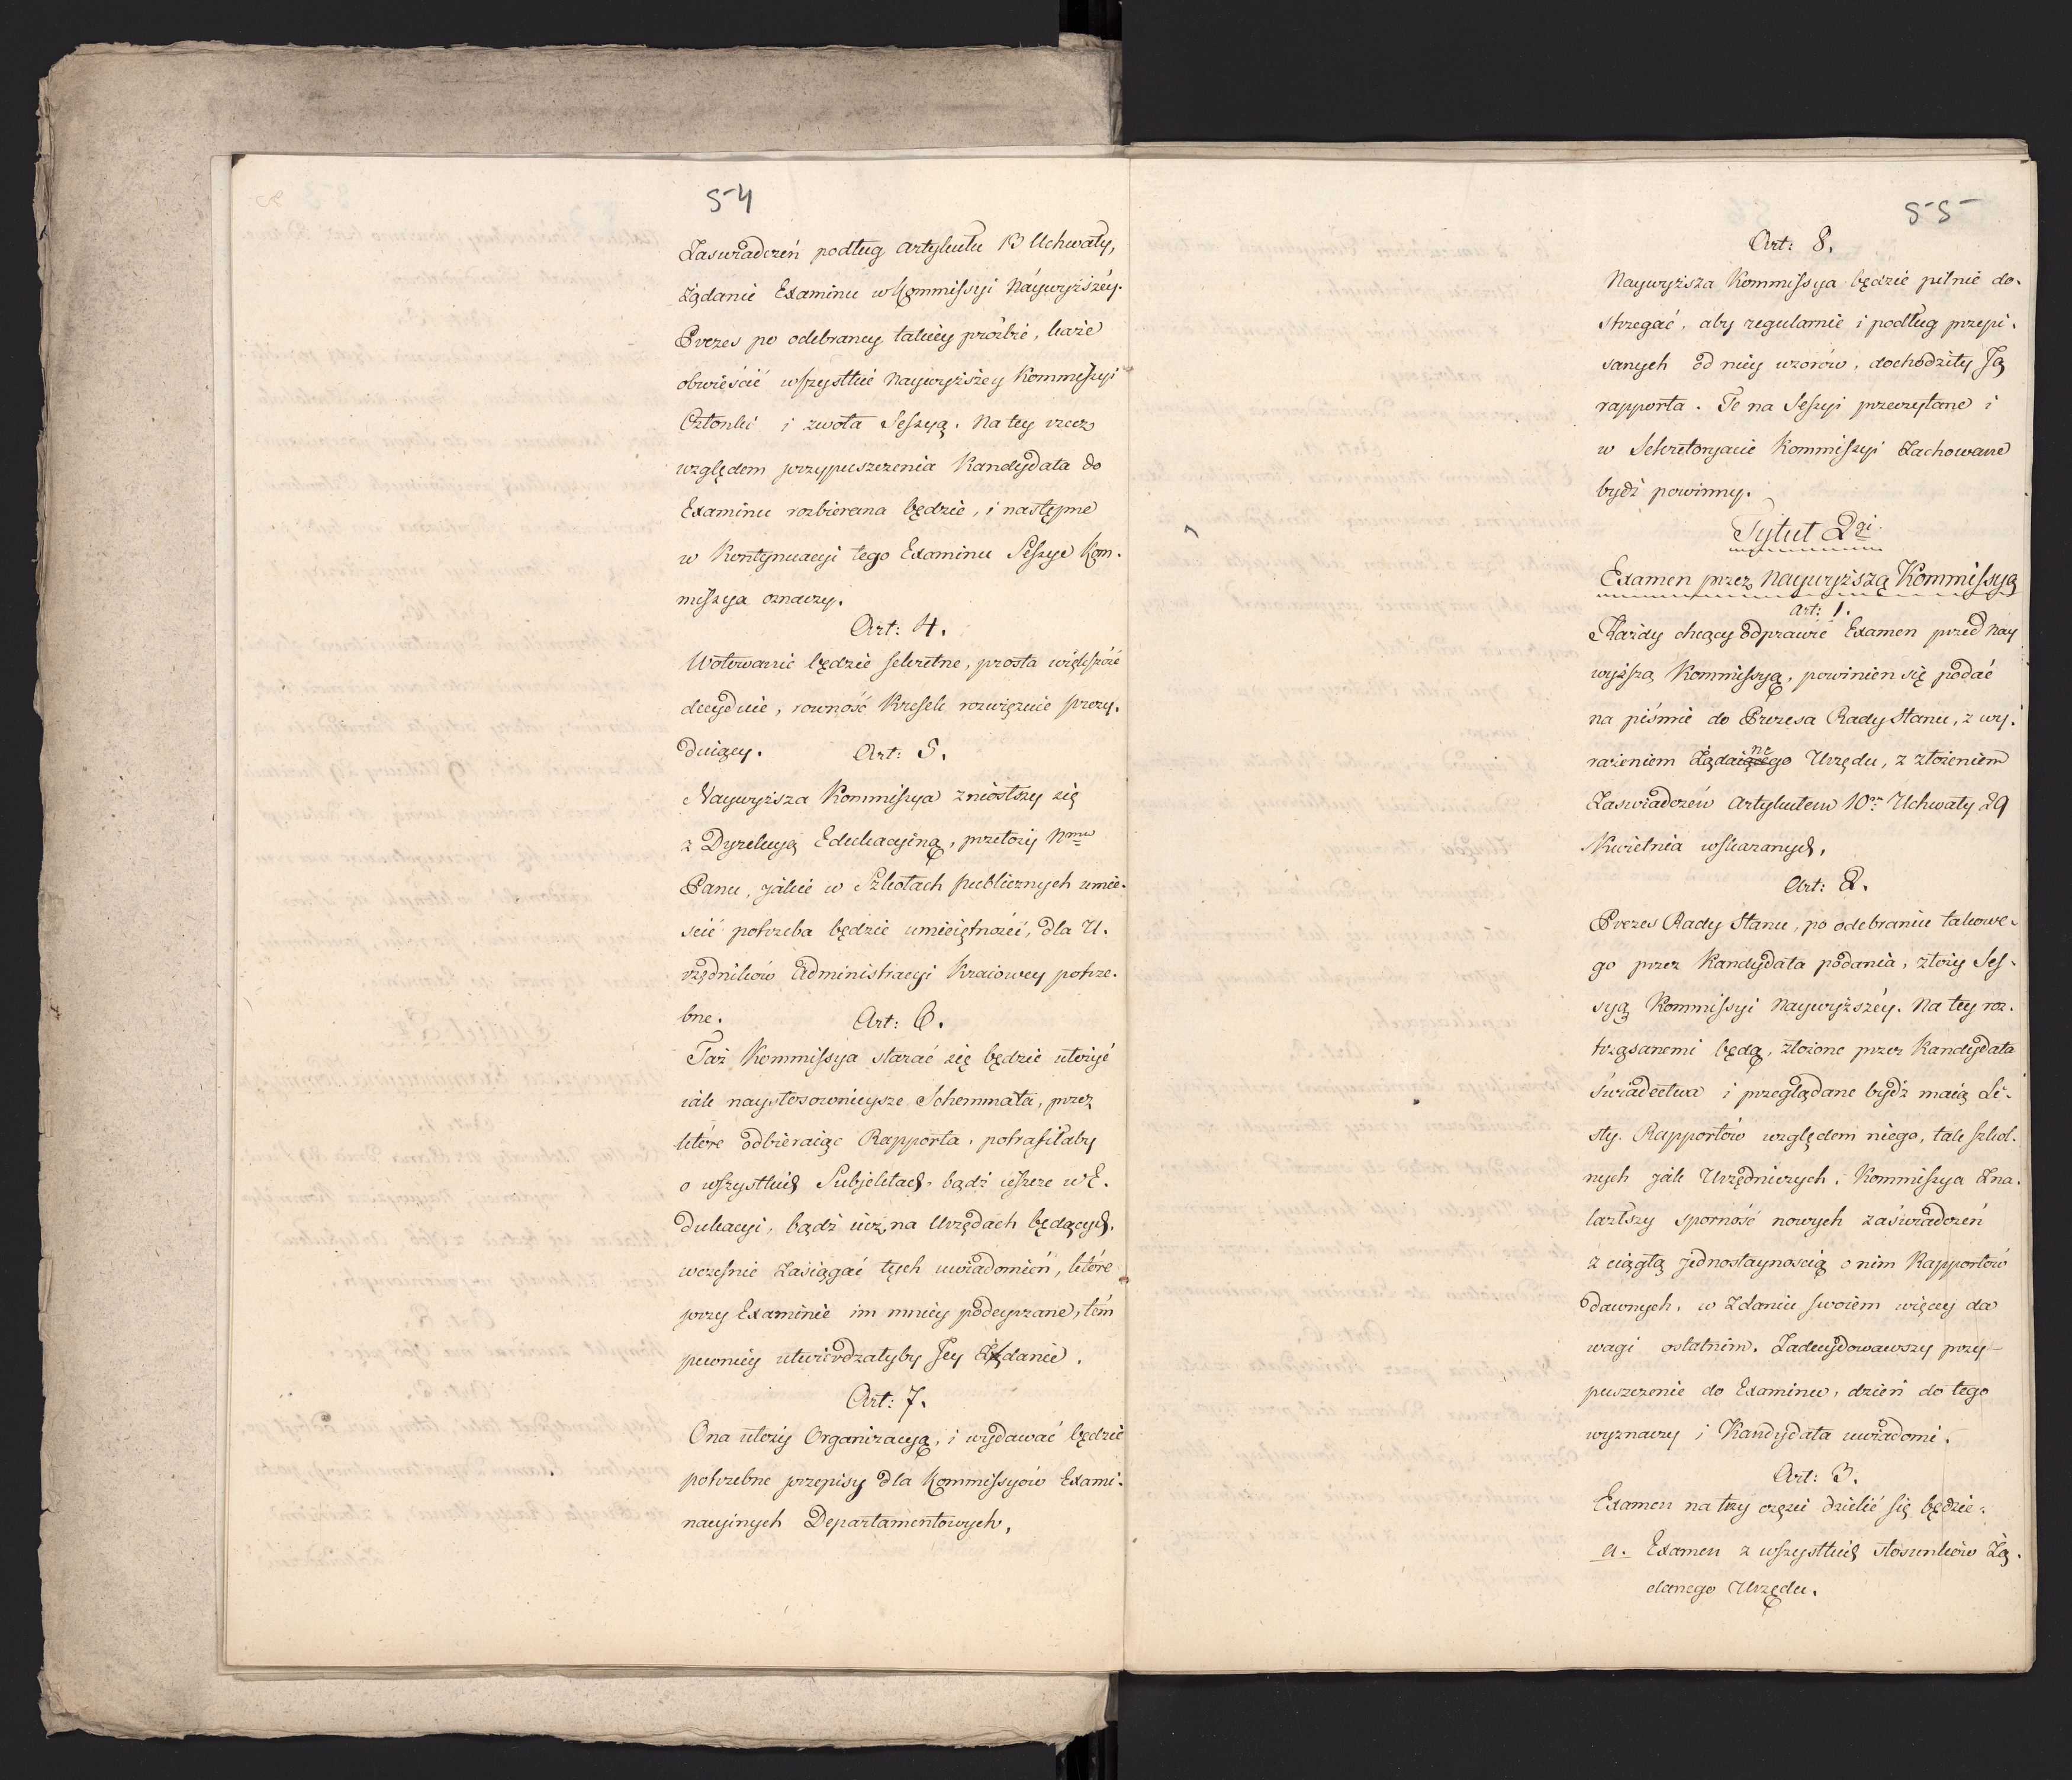 54
Zaswiadczeń podług artykułu 13 Uchwały,
żądanie Examinu w Kommissyi Náywyższéy.
Prezes po odebraney takiey prożbie, każe
obwieścić wszystkie Naywyższey Kommissyi
Członki i zwoła Sessyą. Na tey rzecz
względem przypuszczenia Kandydata do
Examinu rozbierana będzie, i następne
w Kontynuacyi tego Examinu Sessye Kom-
missya oznaczy.
Art: 4.
Wotowanie będzie sekretne, prosta większość
decyduie, rowność Kresek rozwięzuie prezy-
duiący. Art: 5.
Naywyższa Kommissya zniosłszy się
z Dyrekcyą Edukacyiną, przełoży Nmu
Panu, jakie w Szkołach publicznych umie-
scić potrzeba będzie umieiętności, dla U-
rzędników Administracyi Kraiowey potrze-
bne. Art: 6.
Taż Kommissya starać się będzie ułożyć
iak naystosownieysze Schemmata, przez
które odbieraiąc Rapporta, potrafiłaby
o wszystkich Subjektach, bądź ieszcze w E-
dukacyi, bądź iuż na Urzędach będących,
wczesnie zasiągać tych uwiadomień, które
przy Examinie im mniey podeyrzane, tém
pewniey utwierdzałyby Jey Zdanie.
Art: 7.
Ona ułoży Organizacyą, i wydawać będzie
potrzebne przepisy dla Kommissyów Exami-
nacyinych Departamentowych.
55
Art: 8.
Naywyższa Kommissya będzie pilnie do-
strzegać, aby regularnie i podług przepi-
sanych od niey wzorów, dochodziły Ją
rapporta. Te na Sessyi przeczytane i
w Sekretaryacie Kommissyi zachowane
bydź powinny.
Tytuł 2gi
Examen przez Naywyższą Kommissyą
Art: 1.
Każdy chcący odprawić Examen przed Nay
wyższą Kommissyą, powinien się podać
na piśmie do Prezesa Rady Stanu, z wy-
rażeniem Żądanego Urzędu, z złożeniem
Zaswiadczeń Artykułem 10m Uchwały 29
Kwietnia wskazanych,
Art: 2.
Prezes Rady Stanu, po odebraniu takowe-
go przez Kandydata podania, złoży Ses-
syą Kommissyi Naywyższéy. Na tey roz-
trząsanemi będą, złożone przez Kandydata
świadectwa i przeglądane bydź maią Li-
sty. Rapportów względem niego, tak szkol-
nych jak Urzędniczych. Kommissya zna-
lazłszy sporność nowych zaświadczeń
z ciągłą jednostaynoscią o nim Rapportów
dawnych, w Zdaniu swoiem więcey da
wagi ostatnim. Zadecydowawszy przy-
puszczenie do Examinu, dzień do tego
wyznaczy i Kandydata uwiadomi.
Art: 3.
Examen na trzy części dzielić się będzie.
a. Examen z wszystkich stosunków Żą-
danego Urzędu.